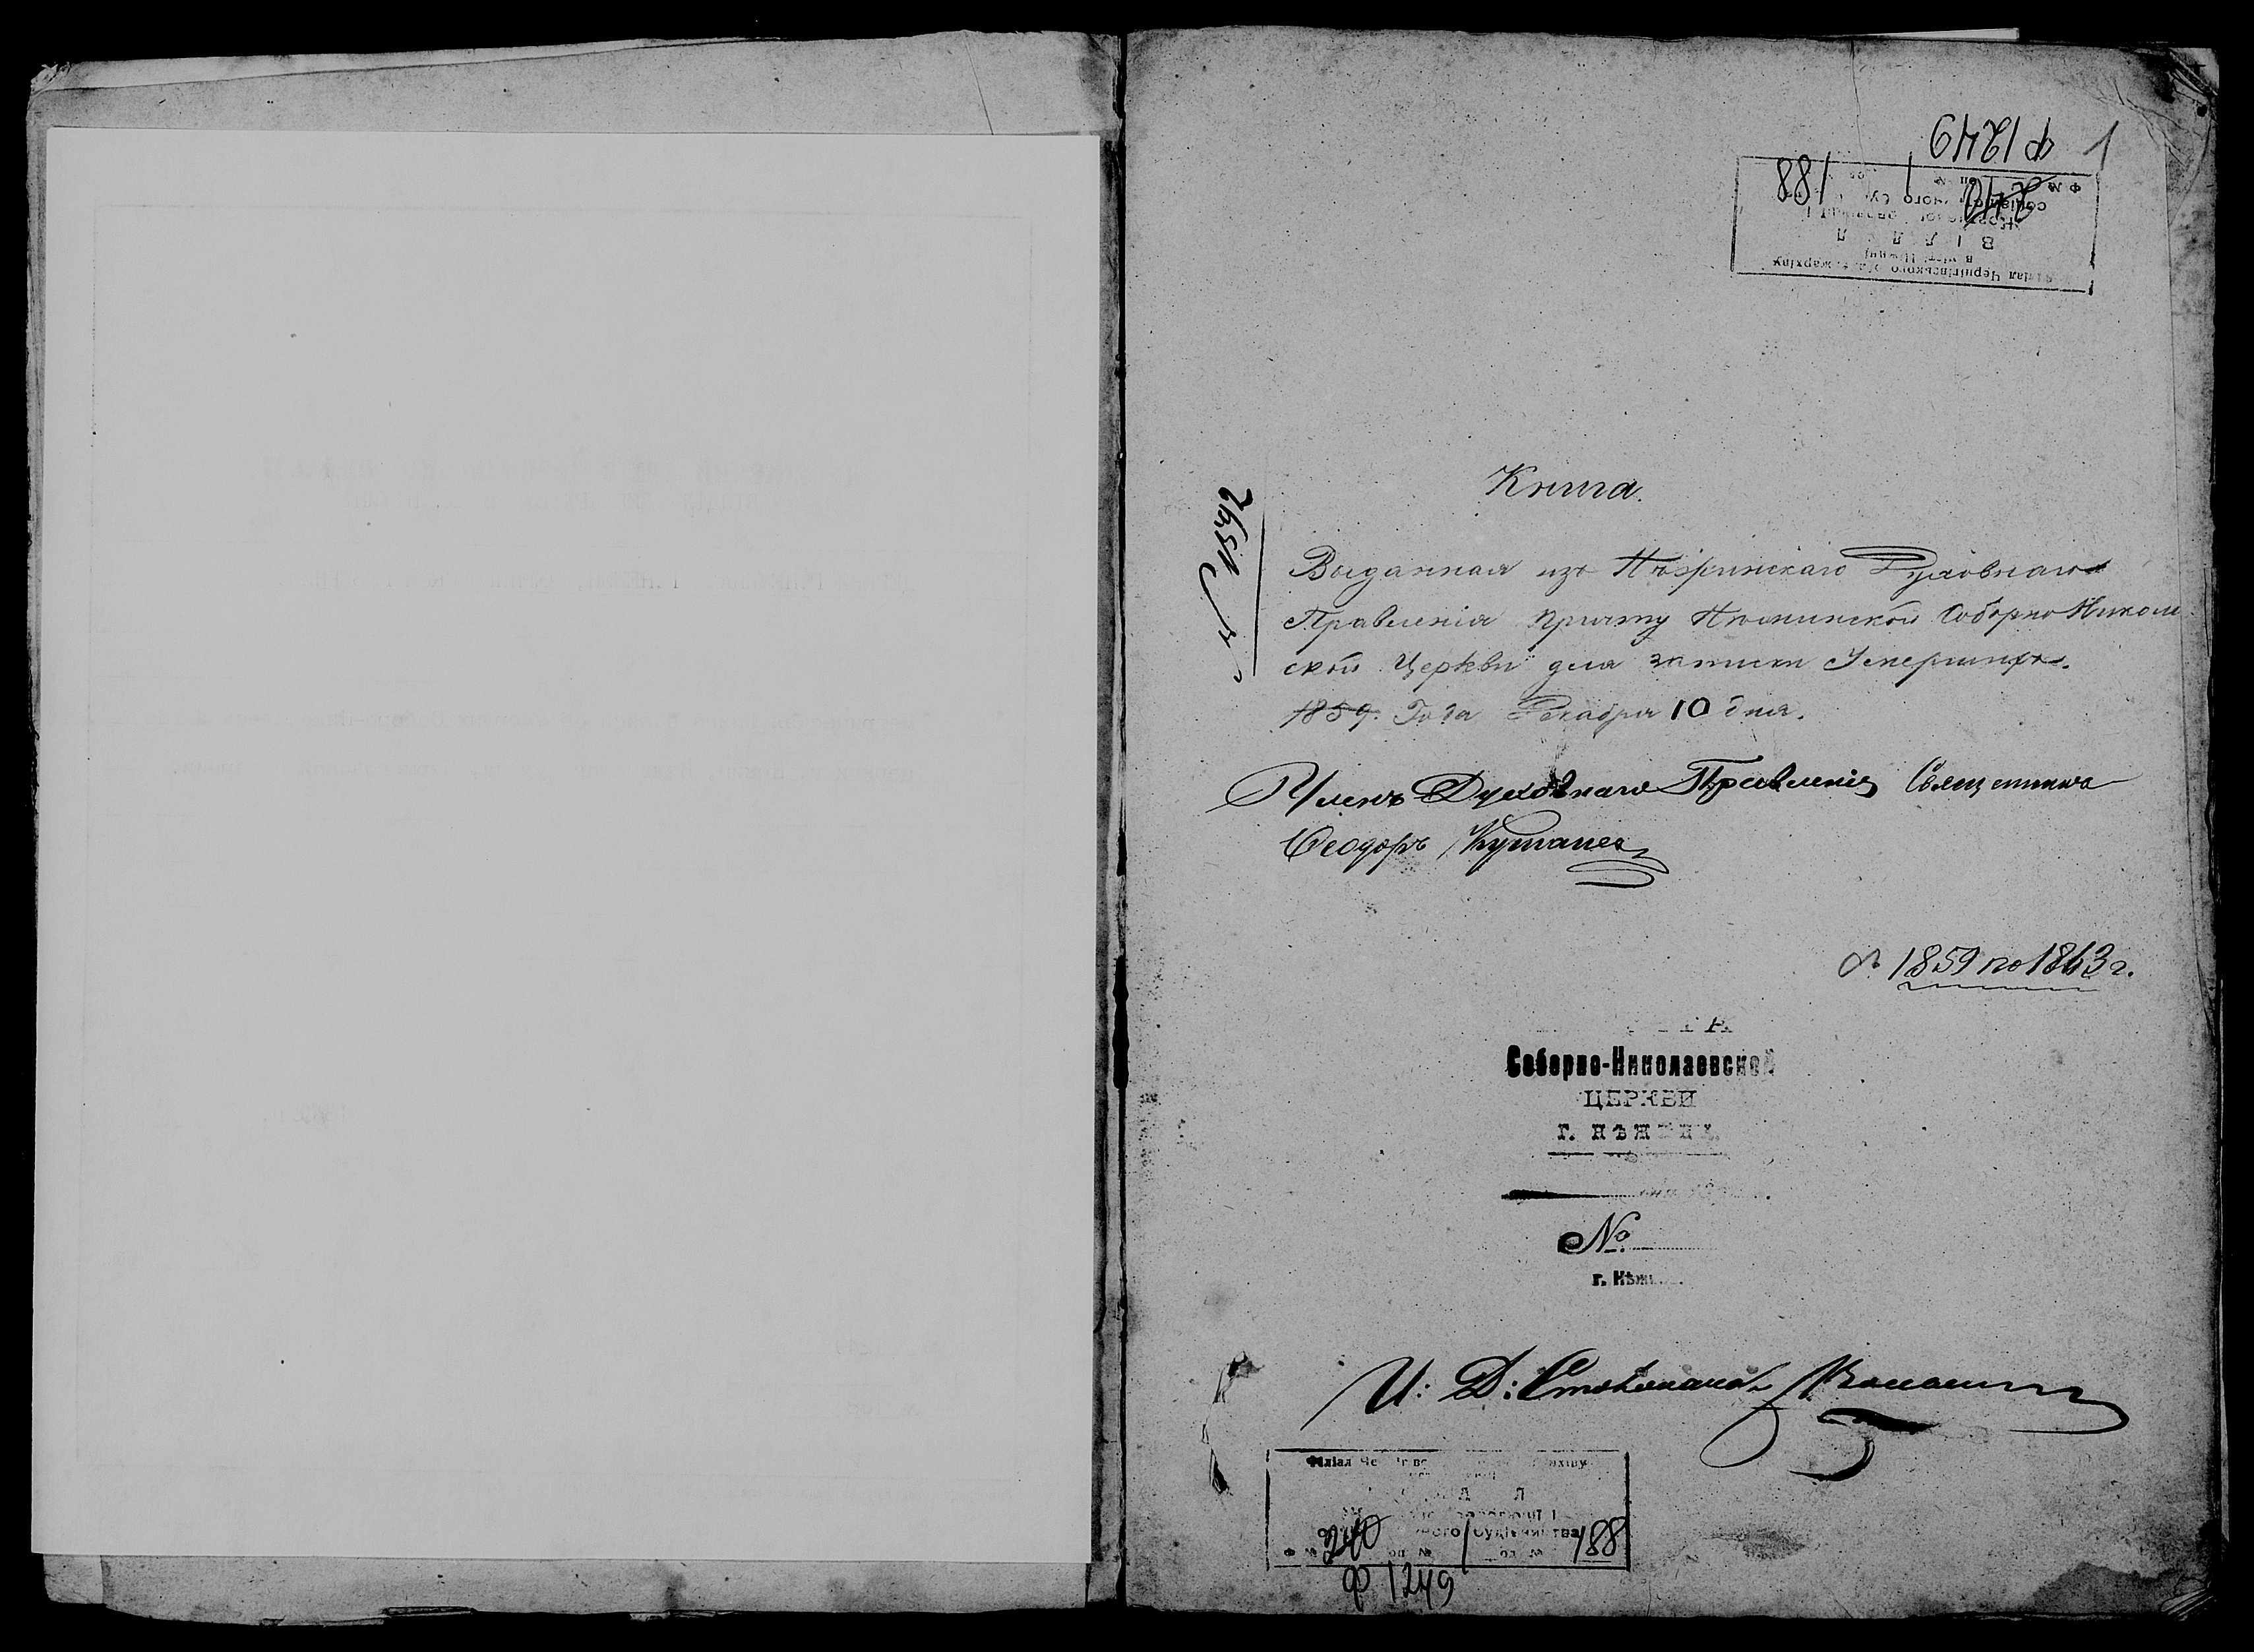 1
Ф 1249
240 1 188
№ 1542
Книга.
Выданная изъ Нѣжинскаго Духовнаго
Правленія причту Нѣжинской Соборно Николаев
ской Церкви для записки Умершихъ.
1859. Года Декабря 10 дня.
Членъ Духовнаго Правленія Священникъ
Ѳеодоръ
съ 1859 по 1863 г.
Соборно-Николаевской
ЦЕРКВИ
г. НѢЖИНА.
№
г. Нѣжи
И: Д: Столоначал
Філіал
240 1 188
Ф 1249